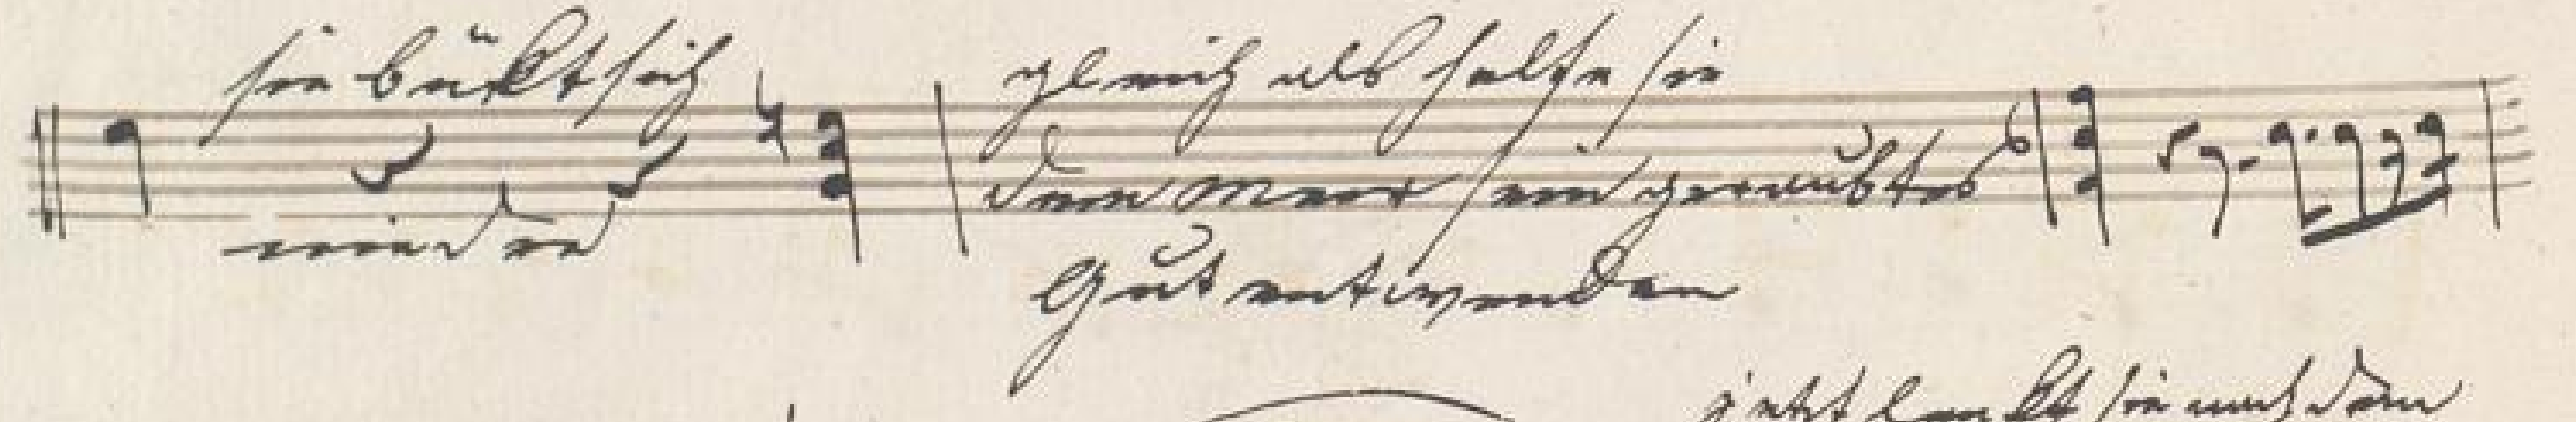 sie bükt sich
nieder
gleich als helfe sie
dem Meer sein geraubtes
Gut entwenden
jetzt lenkt sie nach dem